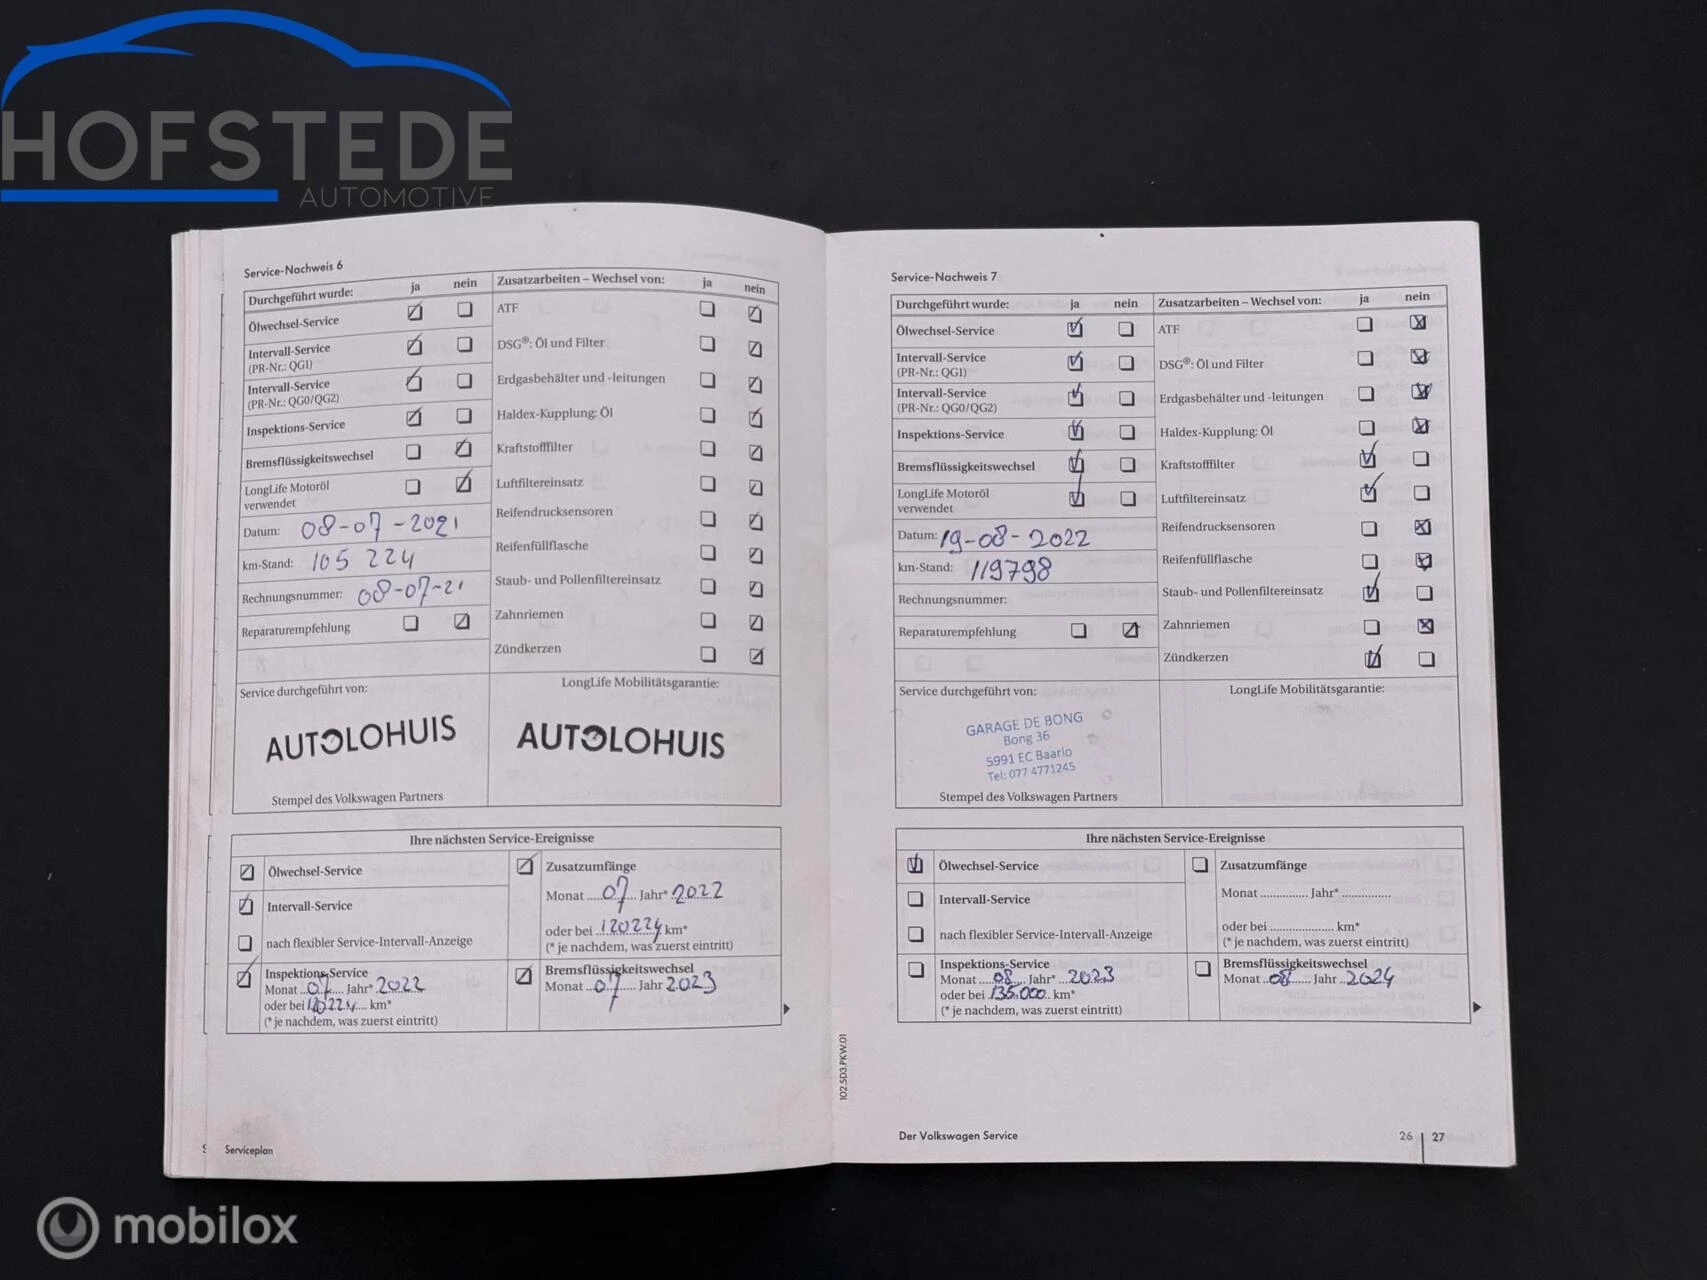 HOFSTEDE
AUTOMOTIVE
Service-Nachweis 6
Durchgeführt wurde: ja nein
Ölwechsel-Service
Intervall-Service
(PR-Nr.: QG1)
Intervall-Service
(PR-Nr.: QG0/QG2)
Inspektions-Service
Bremsflüssigkeitswechsel
LongLife Motoröl
verwendet
Datum: 08-07-2021
km-Stand: 105 224
Rechnungsnummer: 08-07-21
Reparaturempfehlung
Zusatzarbeiten – Wechsel von: ja nein
ATF
DSG®: Öl und Filter
Erdgasbehälter und -leitungen
Haldex-Kupplung: Öl
Kraftstofffilter
Luftfiltereinsatz
Reifendrucksensoren
Reifenfüllflasche
Staub- und Pollenfiltereinsatz
Zahnriemen
Zündkerzen
Service durchgeführt von:
AUTOLOHUIS
Stempel des Volkswagen Partners
LongLife Mobilitätsgarantie:
AUTOLOHUIS
Ihre nächsten Service-Ereignisse
Ölwechsel-Service
Intervall-Service
nach flexibler Service-Intervall-Anzeige
Inspektions-Service
Monat 07 Jahr* 2022
oder bei 120224 km*
(* je nachdem, was zuerst eintritt)
Zusatzumfänge
Monat 07 Jahr* 2022
oder bei 120224 km*
(* je nachdem, was zuerst eintritt)
Bremsflüssigkeitswechsel
Monat 07 Jahr 2023
Serviceplan
Service-Nachweis 7
Durchgeführt wurde: ja nein
Ölwechsel-Service
Intervall-Service
(PR-Nr.: QG1)
Intervall-Service
(PR-Nr.: QG0/QG2)
Inspektions-Service
Bremsflüssigkeitswechsel
LongLife Motoröl
verwendet
Datum: 19-08-2022
km-Stand: 119798
Rechnungsnummer:
Reparaturempfehlung
Zusatzarbeiten – Wechsel von: ja nein
ATF
DSG®: Öl und Filter
Erdgasbehälter und -leitungen
Haldex-Kupplung: Öl
Kraftstofffilter
Luftfiltereinsatz
Reifendrucksensoren
Reifenfüllflasche
Staub- und Pollenfiltereinsatz
Zahnriemen
Zündkerzen
Service durchgeführt von:
GARAGE DE BONG
Bong 36
5991 EC Baarlo
Tel: 077 4771245
Stempel des Volkswagen Partners
LongLife Mobilitätsgarantie:
Ihre nächsten Service-Ereignisse
Ölwechsel-Service
Intervall-Service
nach flexibler Service-Intervall-Anzeige
Inspektions-Service
Monat 08 Jahr* 2023
oder bei 135.000 km*
(* je nachdem, was zuerst eintritt)
Zusatzumfänge
Monat .............. Jahr* ..............
oder bei .................... km*
(* je nachdem, was zuerst eintritt)
Bremsflüssigkeitswechsel
Monat 08 Jahr 2024
102.5D3.PKW.01
Der Volkswagen Service
26 27
mobilox